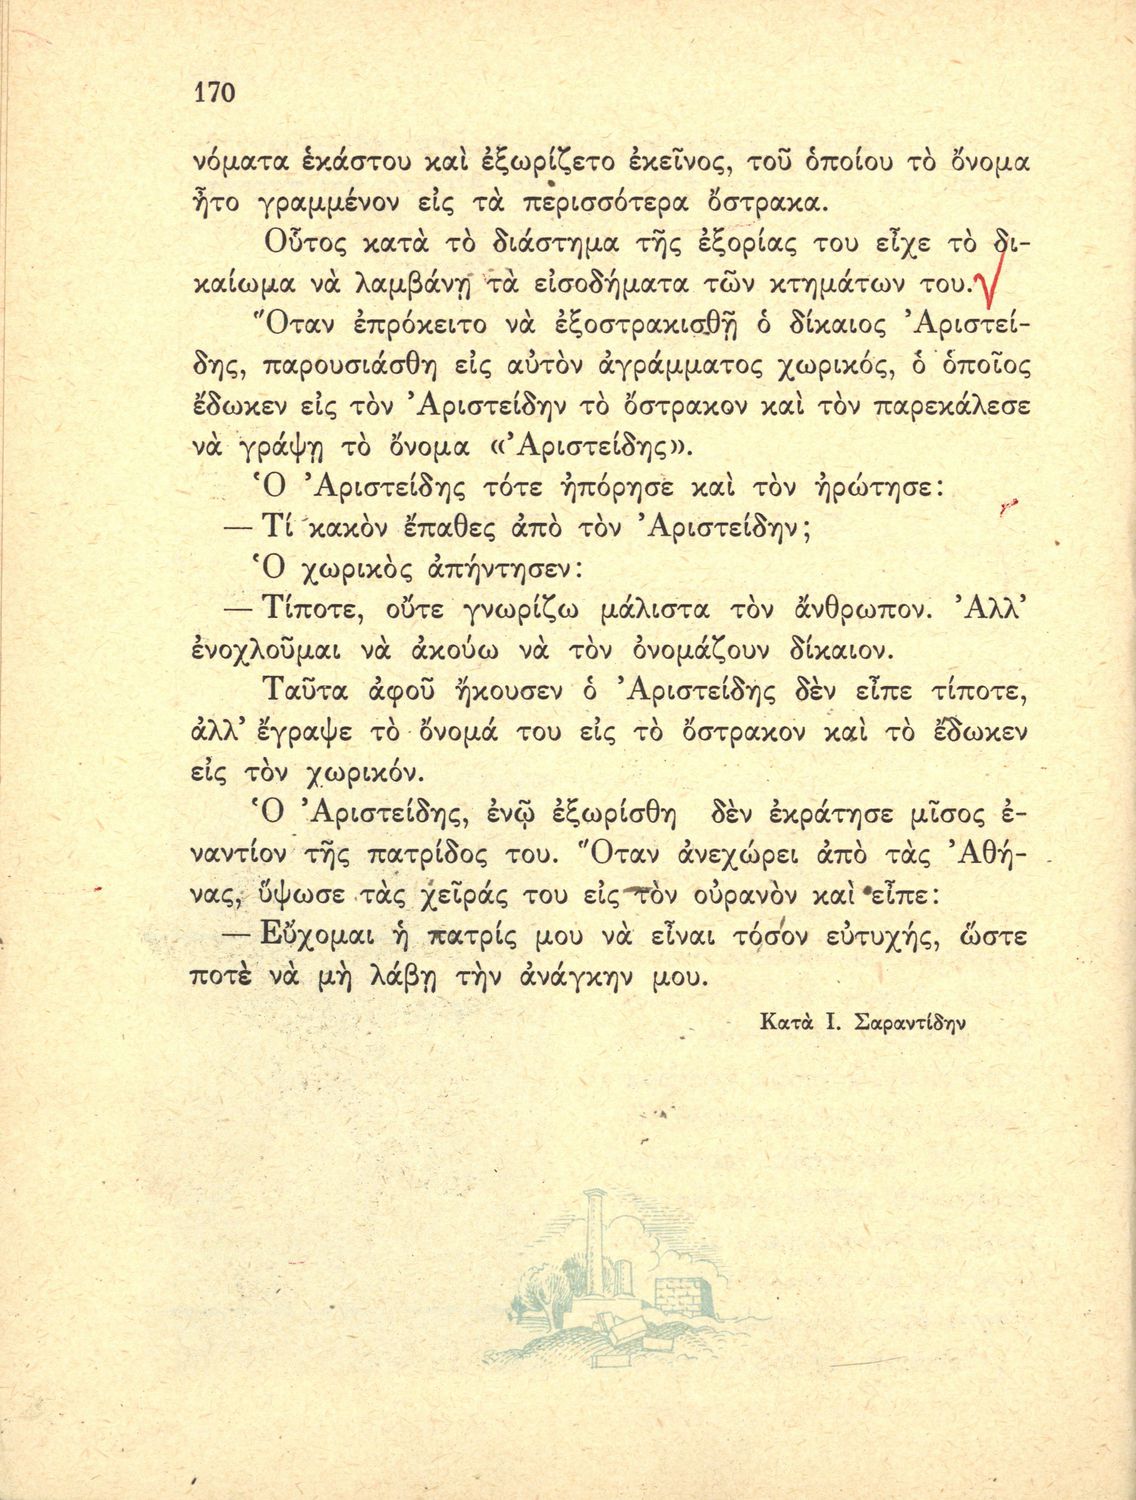 170
νόματα ἑκάστου καὶ ἐξωρίζετο ἐκεῖνος, τοῦ ὁποίου τὸ ὄνομα
ἦτο γραμμένον εἰς τὰ περισσότερα ὄστρακα.
Οὗτος κατὰ τὸ διάστημα τῆς ἐξορίας του εἶχε τὸ δι-
καίωμα νὰ λαμβάνῃ τὰ εἰσοδήματα τῶν κτημάτων του.
Ὅταν ἐπρόκειτο νὰ ἐξοστρακισθῇ ὁ δίκαιος Ἀριστεί-
δης, παρουσιάσθη εἰς αὐτὸν ἀγράμματος χωρικός, ὁ ὁποῖος
ἔδωκεν εἰς τὸν Ἀριστείδην τὸ ὄστρακον καὶ τὸν παρεκάλεσε
νὰ γράψῃ τὸ ὄνομα «Ἀριστείδης».
Ὁ Ἀριστείδης τότε ἠπόρησε καὶ τὸν ἠρώτησε:
— Τί κακὸν ἔπαθες ἀπὸ τὸν Ἀριστείδην;
Ὁ χωρικὸς ἀπήντησεν:
— Τίποτε, οὔτε γνωρίζω μάλιστα τὸν ἄνθρωπον. Ἀλλ’
ἐνοχλοῦμαι νὰ ἀκούω νὰ τὸν ὀνομάζουν δίκαιον.
Ταῦτα ἀφοῦ ἤκουσεν ὁ Ἀριστείδης δὲν εἶπε τίποτε,
ἀλλ’ ἔγραψε τὸ ὄνομά του εἰς τὸ ὄστρακον καὶ τὸ ἔδωκεν
εἰς τὸν χωρικόν.
Ὁ Ἀριστείδης, ἐνῷ ἐξωρίσθη δὲν ἐκράτησε μῖσος ἐ-
ναντίον τῆς πατρίδος του. Ὅταν ἀνεχώρει ἀπὸ τὰς Ἀθή-
νας, ὕψωσε τὰς χεῖράς του εἰς τὸν οὐρανὸν καὶ εἶπε:
— Εὔχομαι ἡ πατρίς μου νὰ εἶναι τόσον εὐτυχής, ὥστε
ποτὲ νὰ μὴ λάβῃ τὴν ἀνάγκην μου.
Κατὰ Ι. Σαραντίδην